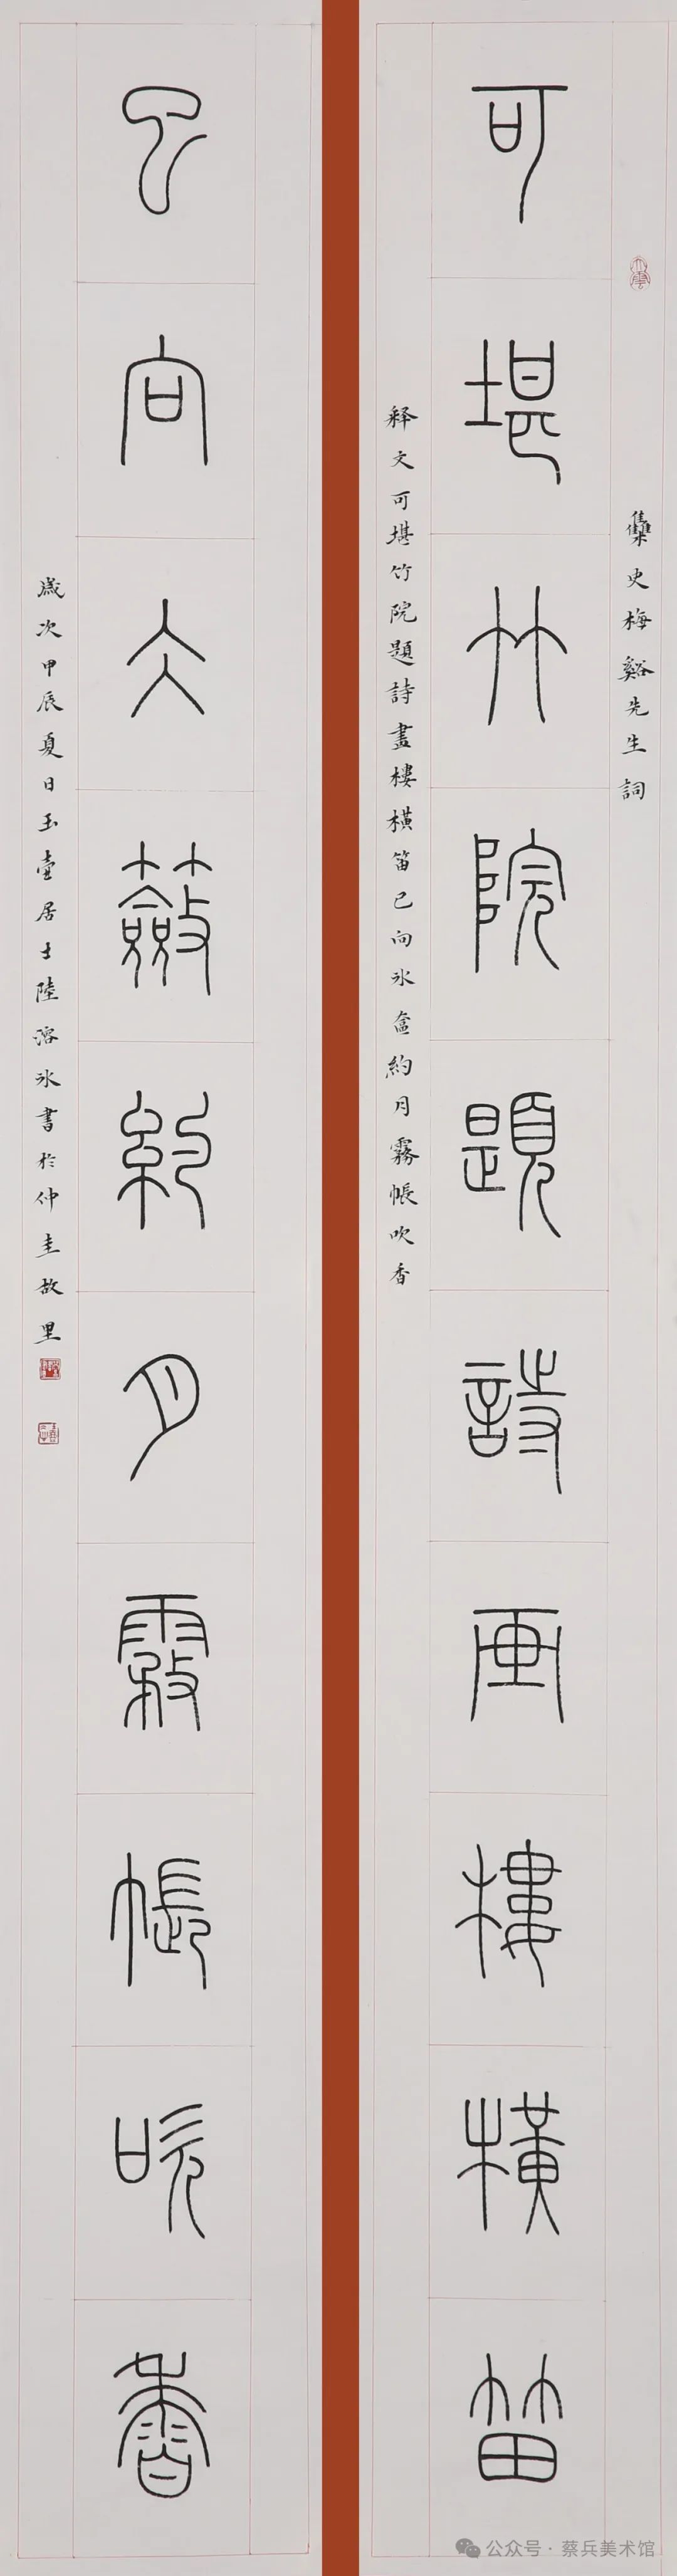 集史梅谿先生詞
可堪竹院題詩畫樓橫笛
释文可堪竹院題詩畫樓橫笛已向冰奩約月霧帳吹香
已向冰蘞約月霧帳吹香
歲次甲辰夏日玉壺居士陸溶冰書於仲圭故里
公众号·蔡兵美术馆